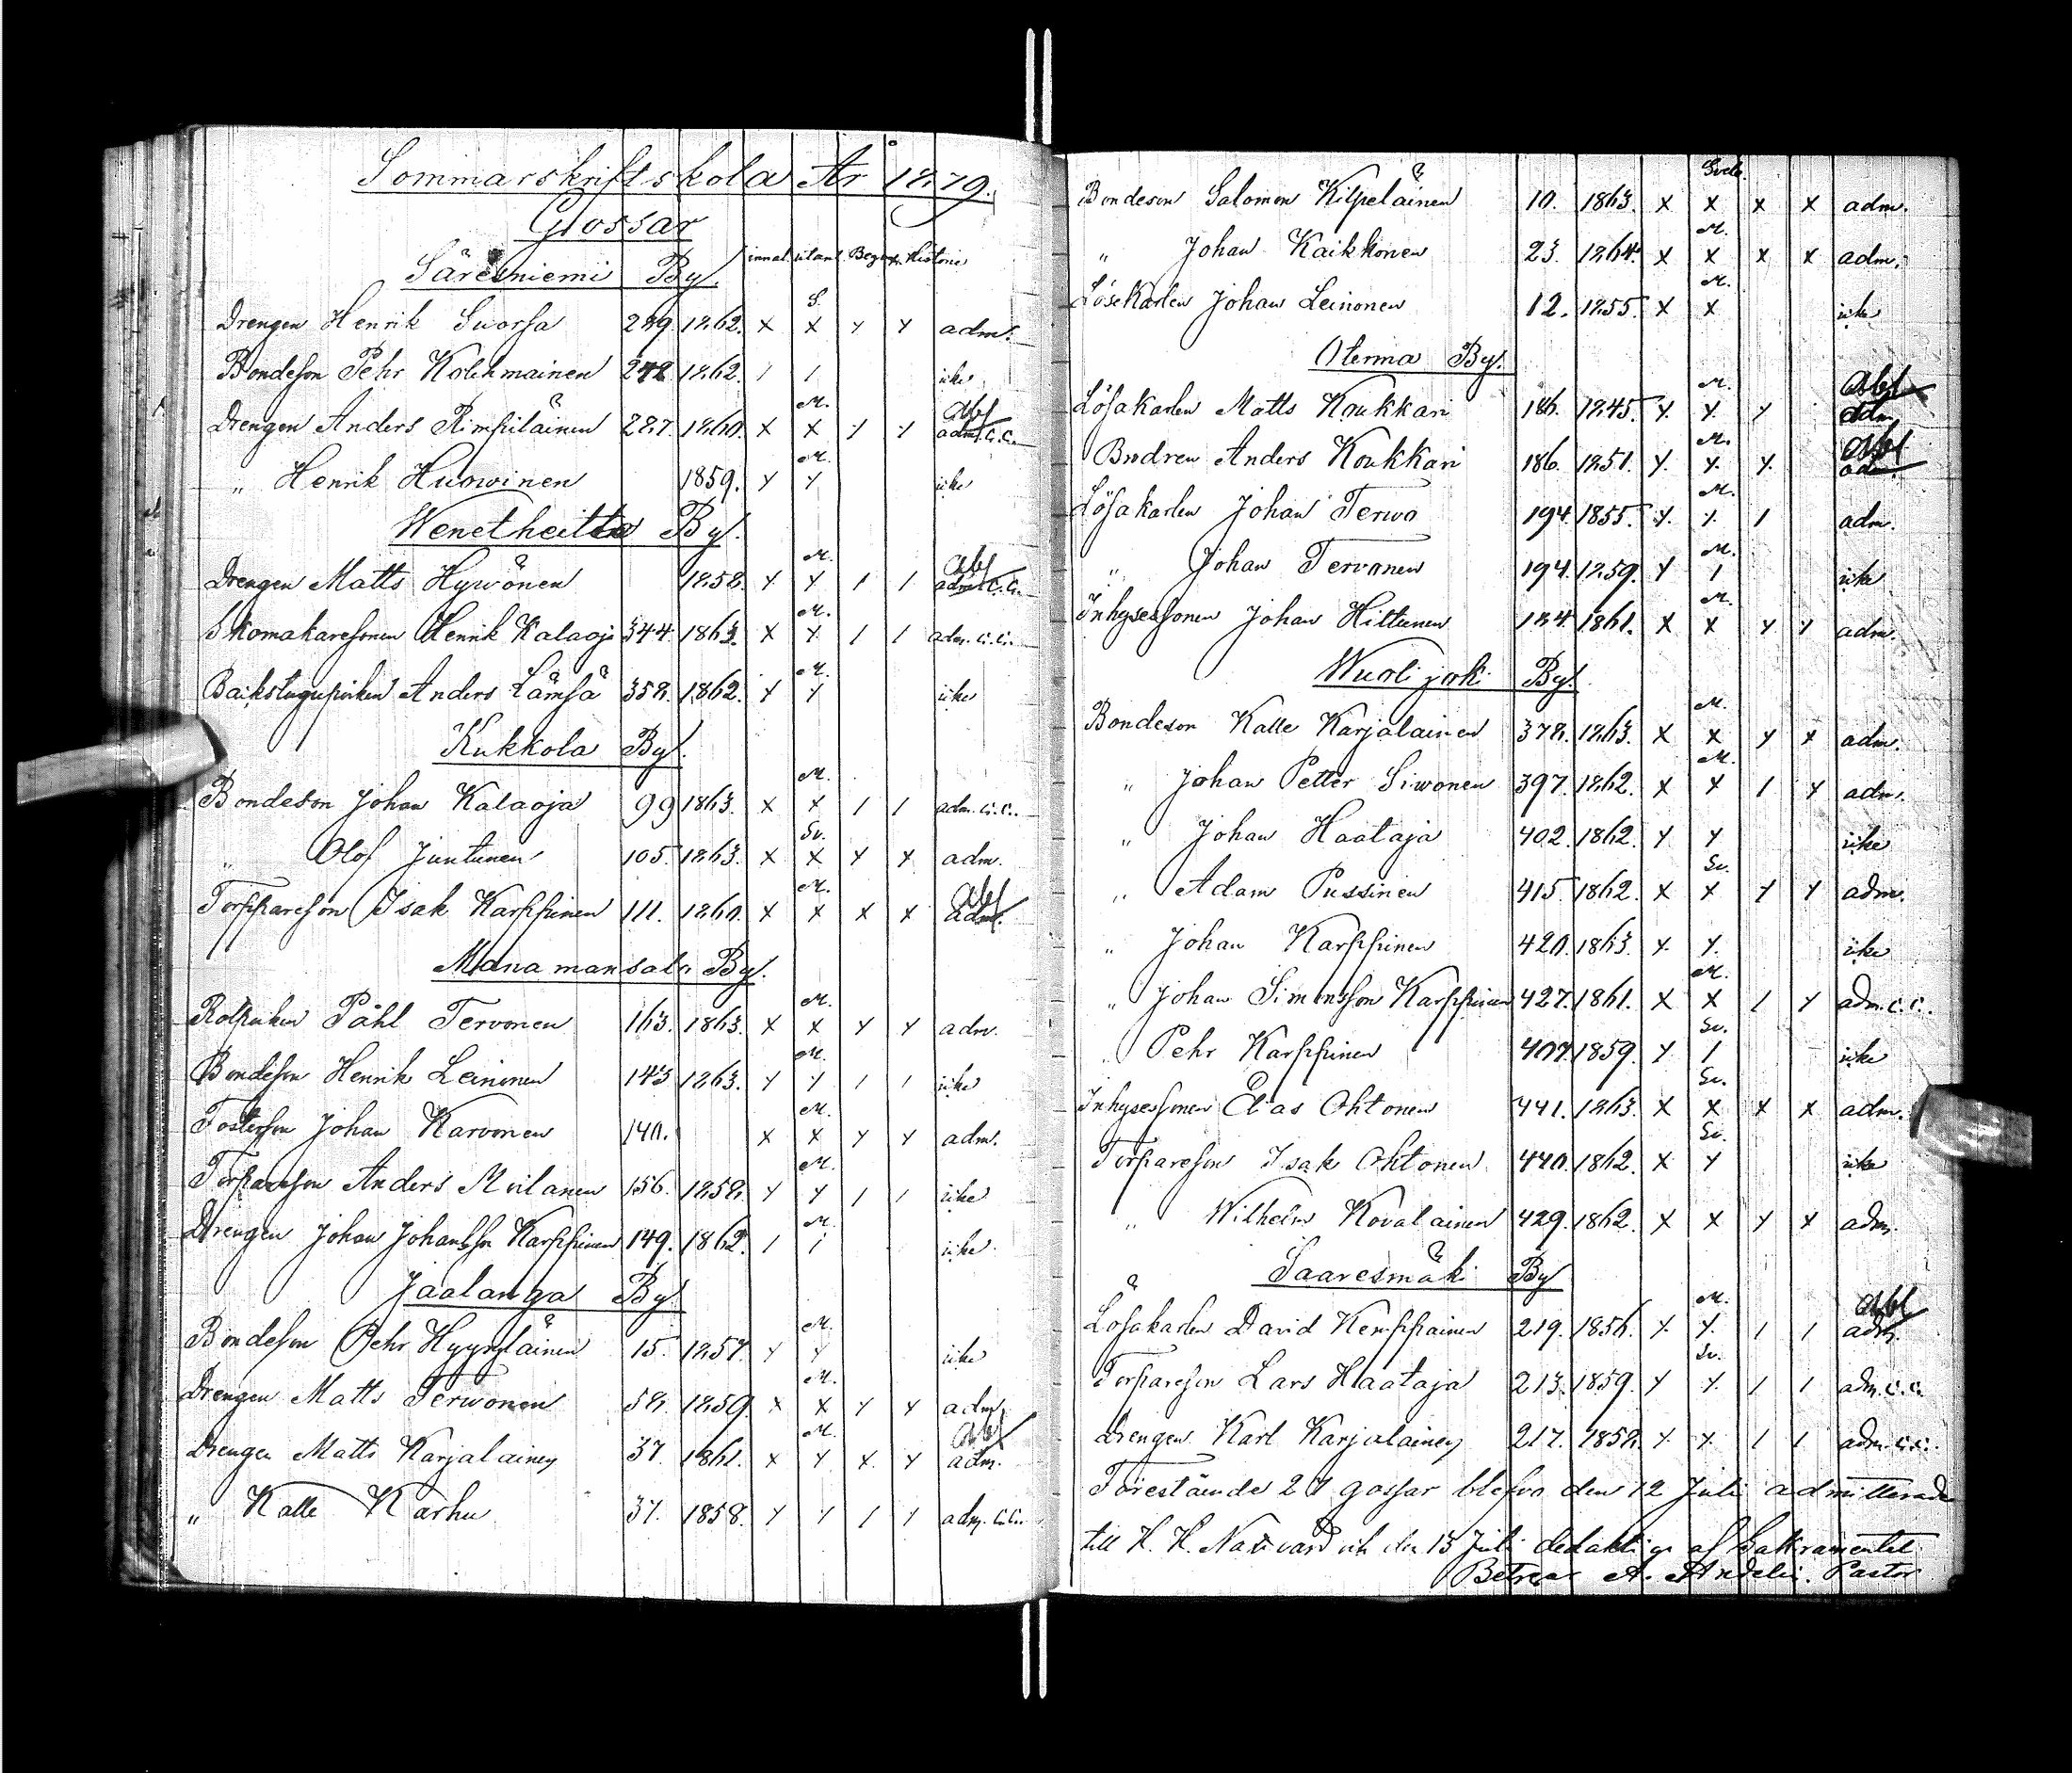 Sommarskriftskola År 1879.
Gossar
innal. utant. Begrep. Historie
Säresniemi By.
S.
Drengen Henrik Suorsa 289. 1862. x x y y adm.
Bondeson Pehr Kolehmainen 272 1862. / / icke
M. Abl
Drengen Anders Rimpiläinen 287. 1860. x x y y adm. c.c.
M.
" Henrik Hurwinen 1859. y y icke
Wenetheitto By.
M. Abl
Drengen Matts Hywönen 1858. y y / / adm. c.c.
M.
Skomakaresonen Henrik Kalaoja 344. 1863. x y / / adm. c.c.
M.
Backstugupoiken Anders Lämsä 358. 1862. y y icke
Kukkola By.
M.
Bondeson Johan Kalaoja 99 1863. x x / / adm. c.c.
Sv.
" Olof Juntunen 105. 1863. x x y y adm.
M. Abl
Torppareson Isak Karppinen 111. 1860. x x x x adm.
Manamansalo By.
M.
Rotpoiken Påhl Tervonen 163. 1863. x x y y adm.
M.
Bondeson Henrik Leinonen 143 1863. y y / / icke
M.
Fosterson Johan Karvonen 140. x x y y adm.
M.
Torpareson Anders Moilanen 156. 1858. y y / / icke
M.
Drengen Johan Johansson Karppinen 149. 1862. / / icke
Jaalanga By
M.
Bondeson Pehr Hyyryläinen 15. 1857. y y icke
M.
Drengen Matts Terwonen 58. 1859. x x y y adm.
M. Abl
Drengen Matts Karjalainen 37. 1861. x y x y adm.
" Kalle Karhu 37. 1858. y y / / adm. c.c.
Svels.
Bondeson Salomon Kilpeläinen 10. 1863. x x x x adm.
M.
" Johan Kaikkonen 23. 1864. x x x x adm.
M.
Lösekarlen Johan Leinonen 12. 1855. x x icke
Oterma By.
M. Abl
Lösakarlen Matts Koukkari 186. 1845. y y y adm
M. Abl
Brodren Anders Koukkari 186. 1851. y. y. y. ad
M.
Lösakarlen Johan Terwo 194. 1855. y. y. / adm.
M.
" Johan Tervonen 194. 1859. y / icke
M.
Inhysessonen Johan Hiltunen 184. 1861. x x y y adm.
Wuolijoki By.
M.
Bondeson Kalle Karjalainen 378. 1863. x x y x adm.
M.
" Johan Petter Siwonen 397. 1862. x x / y adm.
" Johan Haataja 402. 1862. y y icke
Sv.
" Adam Pussinen 415 1862. x x y y adm.
" Johan Karppinen 420. 1863. y. y. icke
M.
" Johan Simonsson Karppinen 427. 1861. x x / y adm. c.c.
Sv.
" Pehr Karppinen 407. 1859. y / icke
Sv.
Inhysessonen Elias Ohtonen 441. 1863. x x x x adm.
Sv.
Torpareson Isak Ohtonen 440. 1862. x y icke
" Wilhelm Kovalainen 429. 1862. x x y x adm.
Saaresmäki By
M. Abl
Lösakarlen David Kemppainen 219. 1856. y. y. / / adm.
Sv.
Torpareson Lars Haataja 213. 1859. y y. / / adm. c.c.
Drengen Karl Karjalainen 217. 1858. y. y. / / adm. c.c.
Förestående 27 gossar blefvo den 12 Juli admitterade
till H. H. Nattvard och den 13 Juli delaktige af Sakramentet
Betygar A. Andelin. Pastor